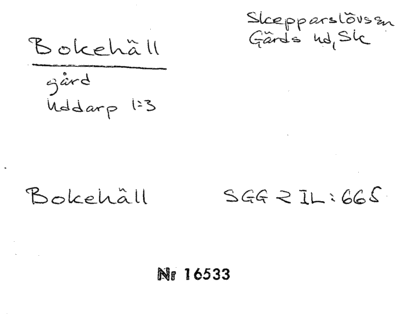 Bokehäll
Skepparslövs sn
Gärds hd, Sk
gård
Uddarp 1:3
Bokehäll
SGG 2 IL: 665
Nr 16533